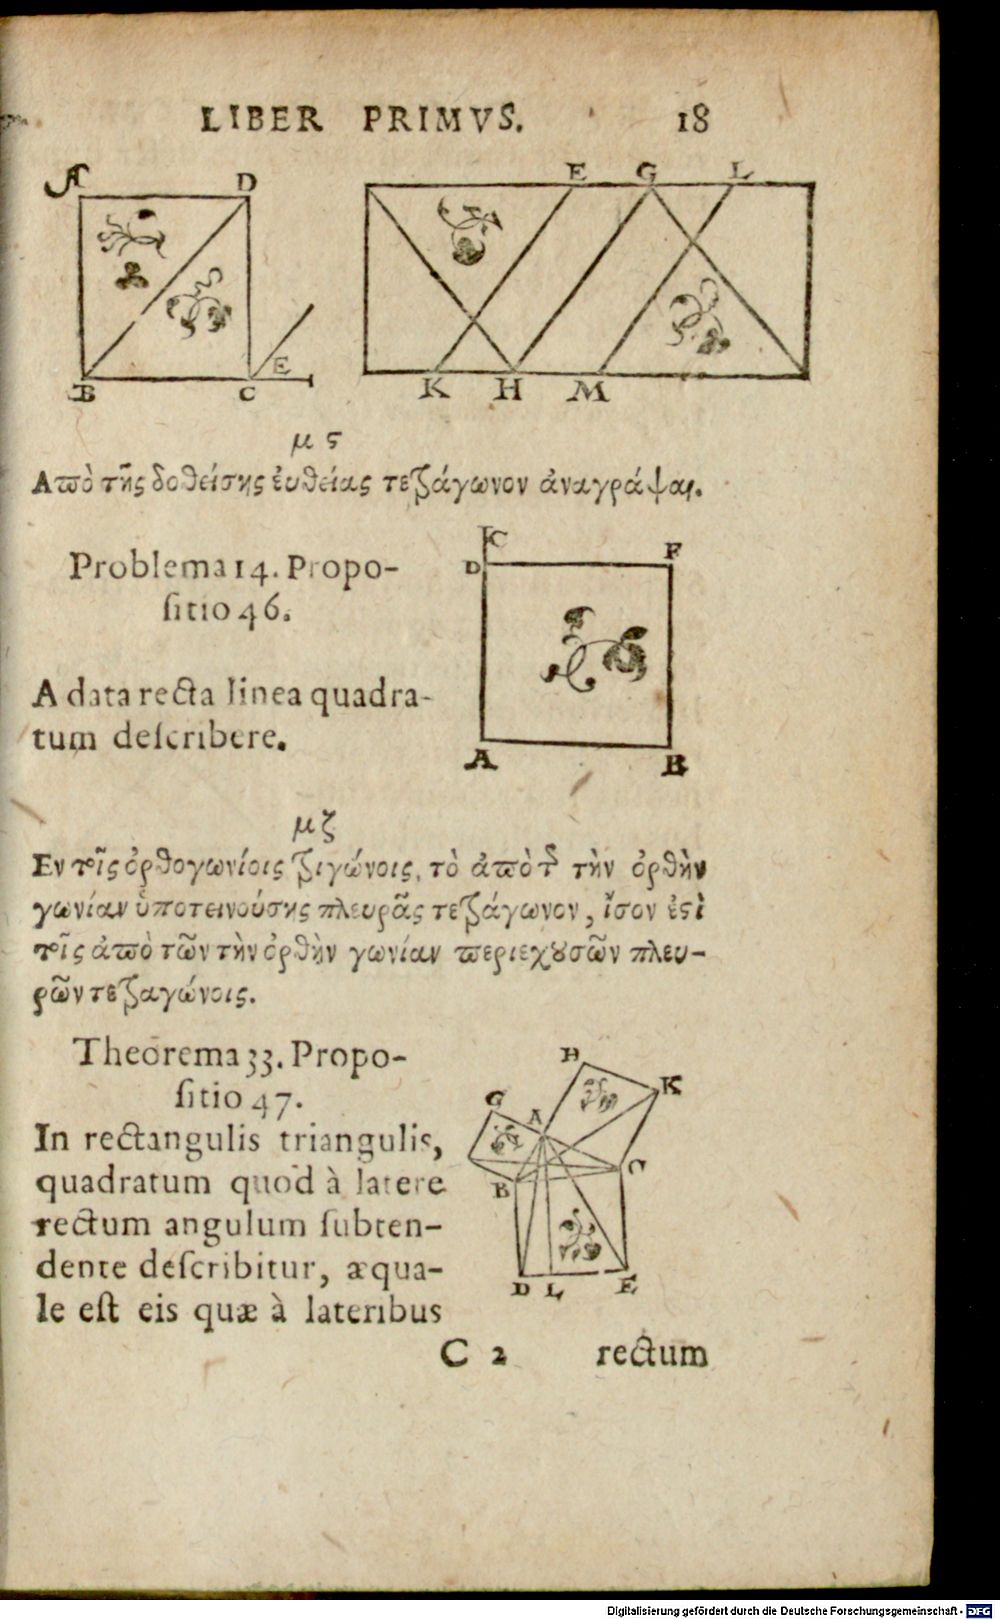 LIBER PRIMVS. 18
A D E G L
B C E K H M
μ ς
Απὸ τῆς δοθείσης ἐυθείας τετράγωνον ἀναγράψαι.
C
D F
Problema 14. Propo-
sitio 46.
A data recta linea quadra-
tum describere.
A B
μζ
Εν τοῖς ὀρθογωνίοις τριγώνοις, τὸ ἀπὸ τ῀ τὴν ὀρθὴν
γωνίαν ὑποτεινούσης πλευρᾶς τετράγωνον, ἴσον ἐστὶ
τοῖς ἀπὸ τῶν τὴν ὀρθὴν γωνίαν περιεχουσῶν πλευ-
ρῶν τετραγώνοις.
Theorema 33. Propo-
sitio 47.
In rectangulis triangulis,
quadratum quod à latere
rectum angulum subten-
dente describitur, æqua-
le est eis quæ à lateribus
H K
G A
B C
D L E
C 2 rectum
Digitalisierung gefördert durch die Deutsche Forschungsgemeinschaft - DFG